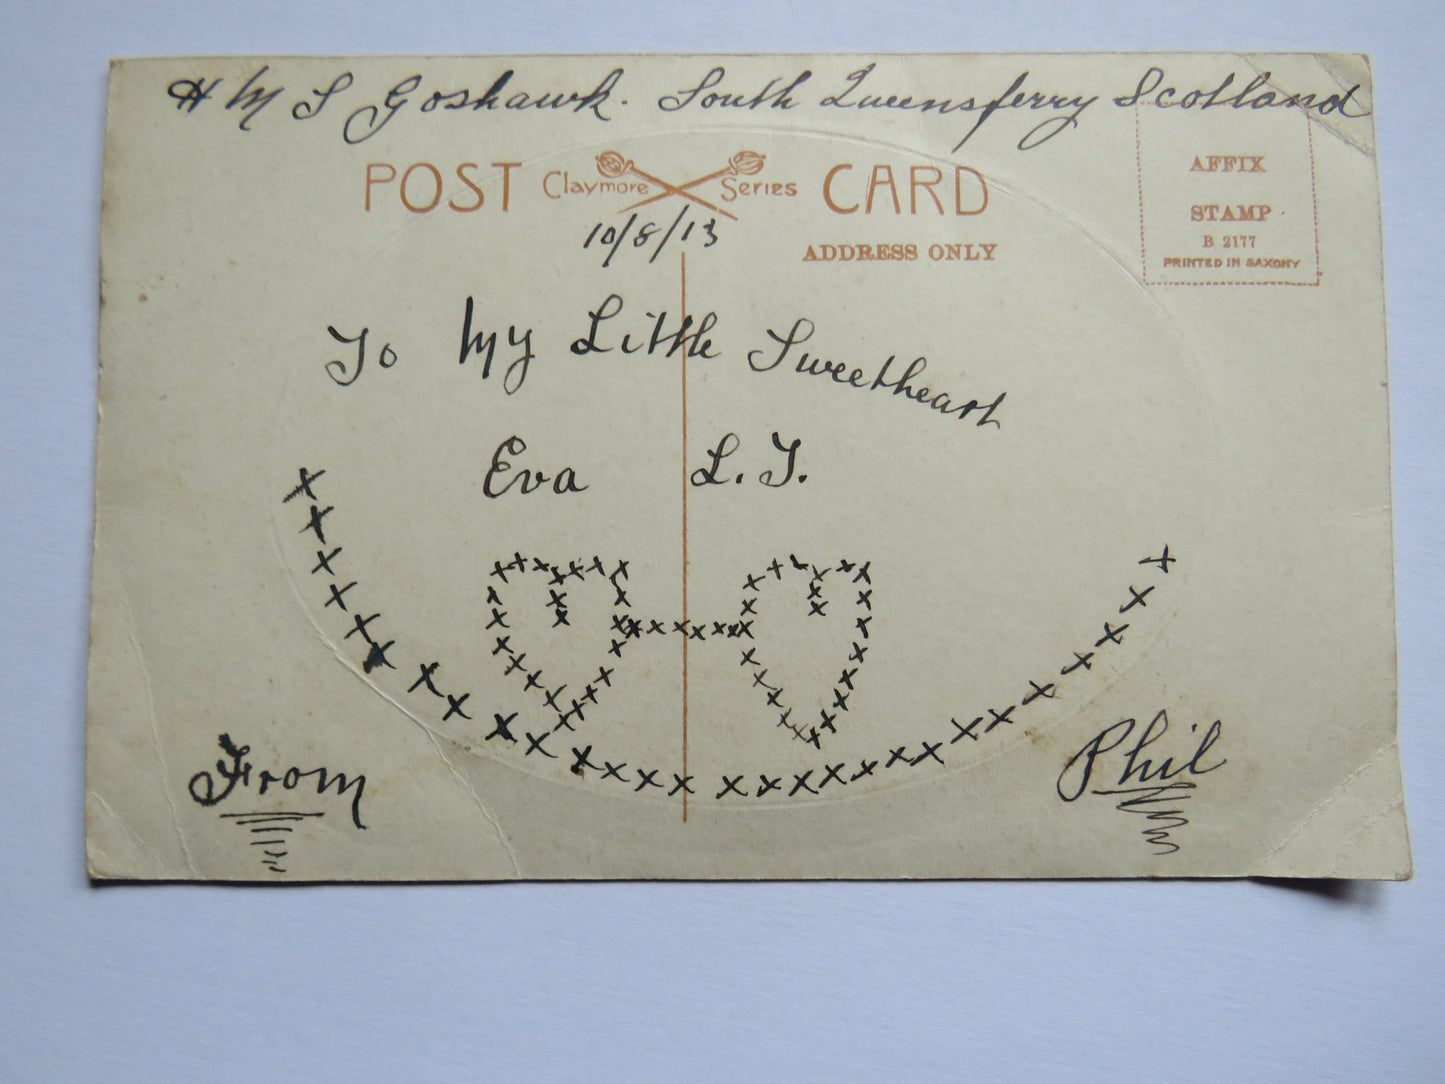 H M S Goshawk. South Queensferry Scotland
POST Claymore Series CARD
AFFIX
STAMP
B 2177
PRINTED IN SAXONY
10/8/13
ADDRESS ONLY
To My Little Sweetheart
Eva L. T.
From
Phil